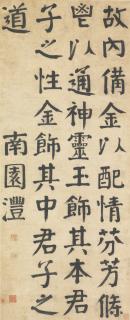 故內備金以配情芬芳條
鬯以通神靈玉飾其本君
子之性金飾其中君子之
道
南園灃